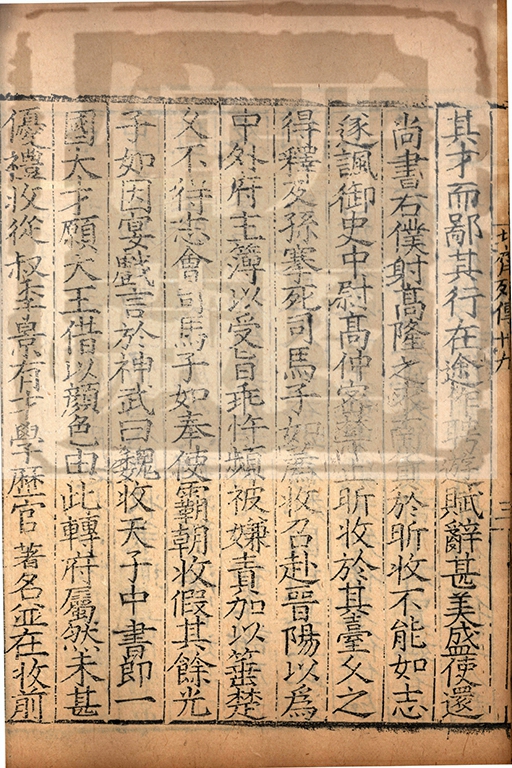 北齊列傳十九
三
其才而鄙其行在途作聘遊賦辭甚美盛使還
尚書右僕射高隆之求南貨於昕收不能如志
遂諷御史中尉高仲密禁止昕收於其臺久之
得釋及孫搴死司馬子如薦收召赴晉陽以爲
中外府主簿以受旨乖忤頻被嫌責加以箠楚
久不得志會司馬子如奉使霸朝收假其餘光
子如因宴戲言於神武曰魏收天子中書郎一
國大才願大王借以顏色由此轉府屬然未甚
優禮收從叔季景有才學歷官著名並在收前